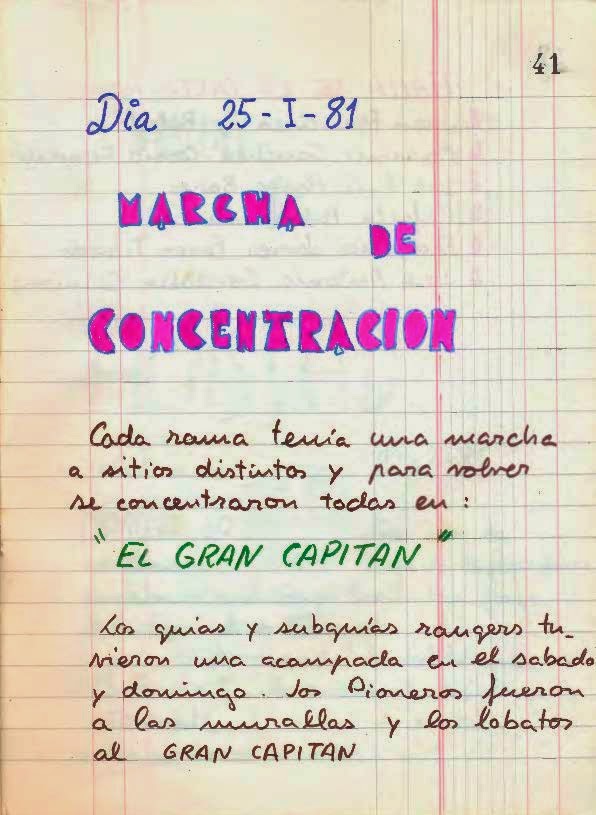 41
Dia 25-I-81
MARCHA
DE
CONCENTRACION
Cada rama tenía una marcha
a sitios distintos y para volver
se concentraron todas en :
"EL GRAN CAPITAN"
Los guias y subguías rangers tu_
vieron una acampada en el sabado
y domingo. los Pioneros fueron
a las murallas y los lobatos
al GRAN CAPITAN